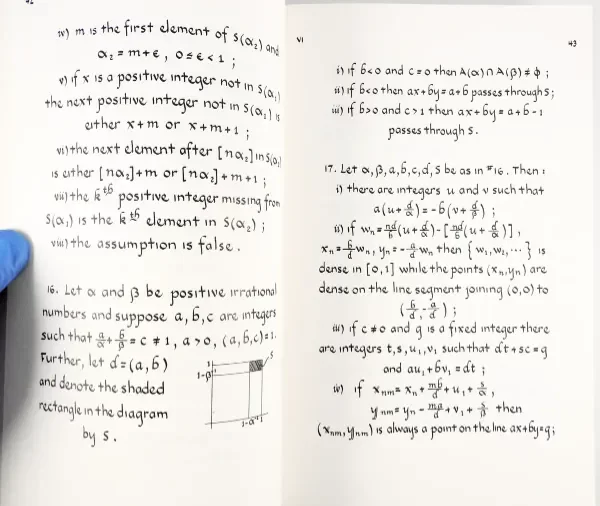 iv) m is the first element of S(α₂) and
α₂ = m+ε , 0≤ε<1 ;
v) if x is a positive integer not in S(α₁)
the next positive integer not in S(α₁) is
either x+m or x+m+1 ;
vi) the next element after [nα₂] in S(α₂)
is either [nα₂]+m or [nα₂]+m+1 ;
vii) the kth positive integer missing from
S(α₁) is the kth element in S(α₂) ;
viii) the assumption is false .
16. Let α and β be positive irrational
numbers and suppose a, b, c are integers
such that a/α + b/β = c ≠ 1, a>0, (a,b,c)=1.
Further, let d=(a,b)
and denote the shaded
rectangle in the diagram
by S .
1
1-β⁻¹
S
1-α⁻¹
1
VI
43
i) if b<0 and c=0 then A(α)∩A(β) ≠ ϕ ;
ii) if b<0 then ax+by=a+b passes through S ;
iii) if b>0 and c>1 then ax+by=a+b-1
passes through S .
17. Let α,β,a,b,c,d,S be as in #16. Then :
i) there are integers u and v such that
a(u+d/α) = -b(v+d/β) ;
ii) if wₙ = nd/b(u+d/α)-[nd/b(u+d/α)] ,
xₙ = b/d wₙ , yₙ = -a/d wₙ then { w₁,w₂,··· } is
dense in [0,1] while the points (xₙ,yₙ) are
dense on the line segment joining (0,0) to
(b/d, -a/d) ;
iii) if c ≠ 0 and g is a fixed integer there
are integers t,s,u₁,v₁ such that dt+sc=g
and au₁+bv₁=dt ;
iv) if xₙₘ = xₙ + mb/d + u₁ + s/α ,
yₙₘ = yₙ - ma/d + v₁ + s/β then
(xₙₘ,yₙₘ) is always a point on the line ax+by=g ;